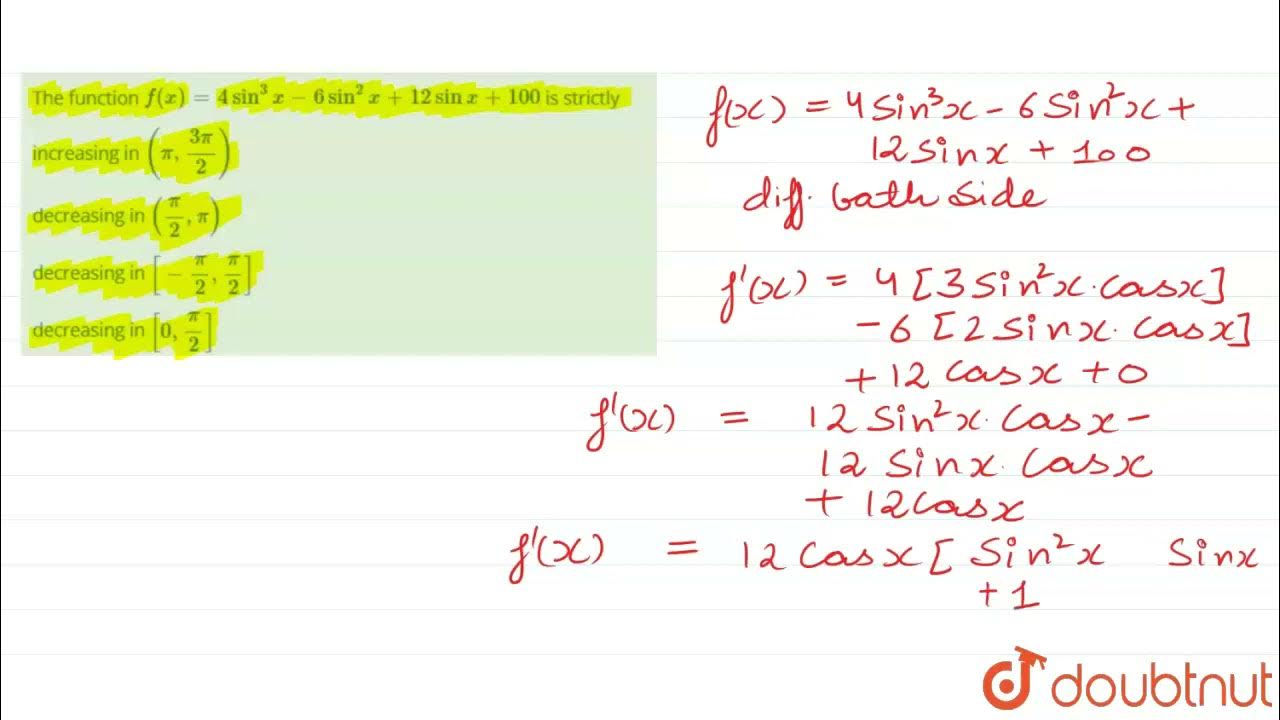 The function f(x) = 4 sin³ x − 6 sin² x + 12 sin x + 100 is strictly
increasing in (π, 3π/2)
decreasing in (π/2, π)
decreasing in [−π/2, π/2]
decreasing in [0, π/2]
f(x) = 4 Sin³x − 6 Sin²x +
12 Sinx + 100
diff. both side
f'(x) = 4 [3 Sin²x · Cosx]
− 6 [2 Sinx · Cosx]
+ 12 Cosx + 0
f'(x) = 12 Sin²x · Cosx −
12 Sinx · Cosx
+ 12 Cosx
f'(x) = 12 Cosx [ Sin²x Sinx
+ 1
doubtnut